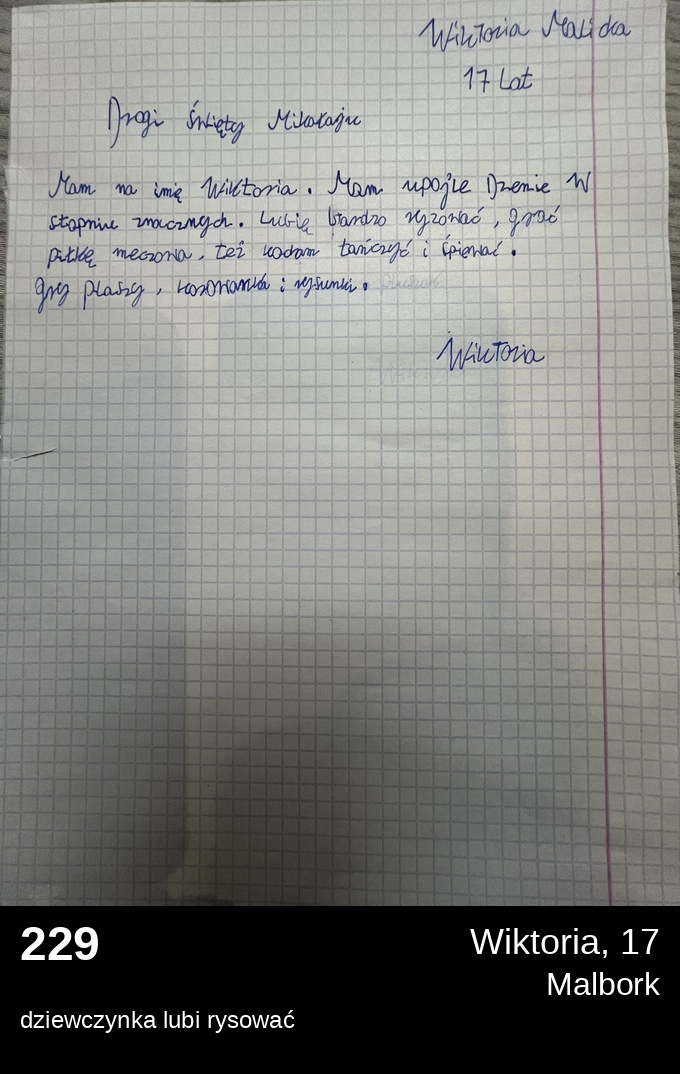 Wiktoria Malicka
17 Lat
Drogi Święty Mikołaju
Mam na imię Wiktoria. Mam upojle Dzenie W
stopniu znacznych. Lubię bardzo ryzować, grać
piłkę meczona, też kocham tańczyć i śpiewać.
gry planszy, kozorowanka i rysunki.
Wiktoria
229
Wiktoria, 17
Malbork
dziewczynka lubi rysować